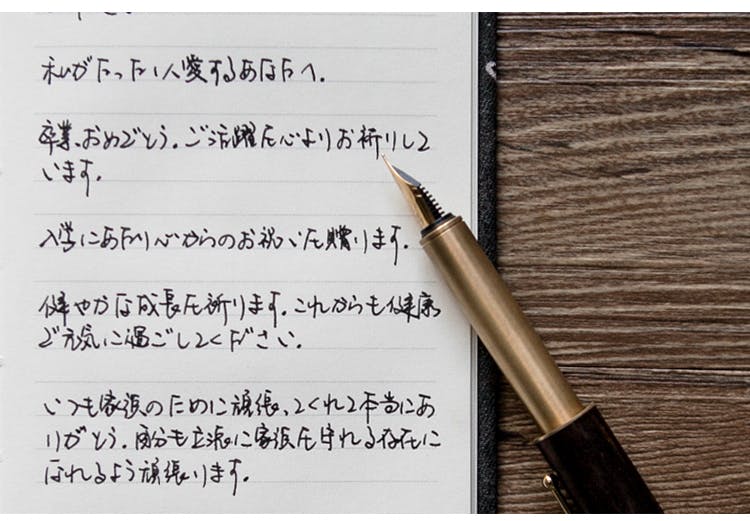 私がたった1人愛するあなたへ.
卒業、おめでとう。ご活躍を心よりお祈りして
います。
入学にあたり心からのお祝いを贈ります.
健やかな成長を祈ります。これからも健康
で元気に過ごしてください.
いつも家族のために頑張ってくれて本当にあ
りがとう。自分も立派に家族を守れる存在に
なれるよう頑張ります。